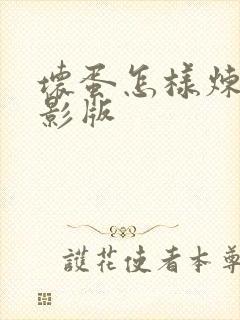 壞蛋怎樣煉
影版
護花使者本尊